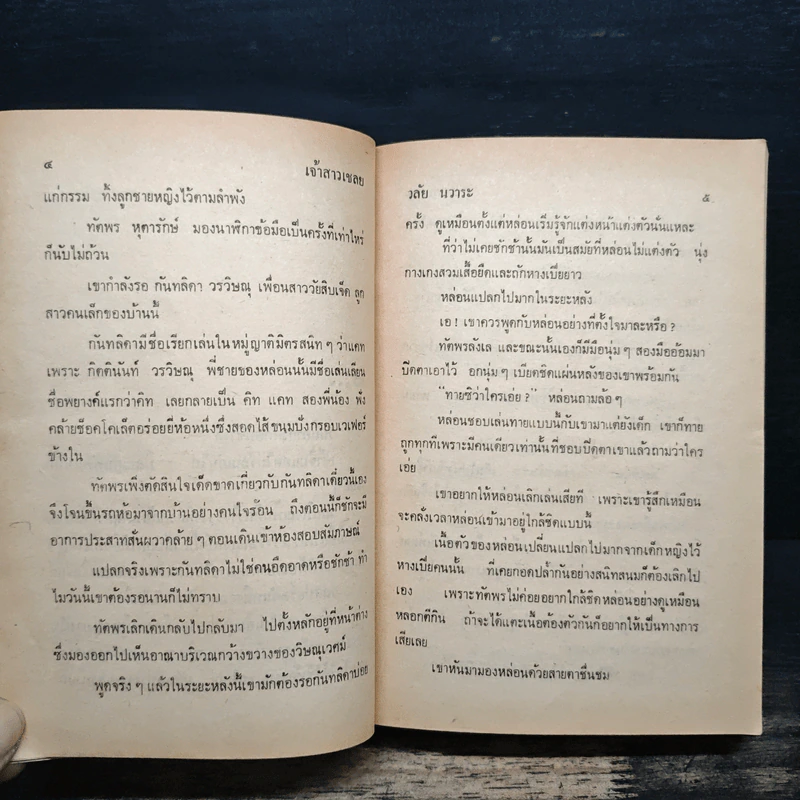 ๔
เจ้าสาวเชลย
แก่กรรม ทิ้งลูกชายหญิงไว้ตามลำพัง
ทัตพร หุตารักษ์ มองนาฬิกาข้อมือเป็นครั้งที่เท่าไหร่
ก็นับไม่ถ้วน
เขากำลังรอ กันทลิดา วรวิษณุ เพื่อนสาววัยสิบเจ็ด ลูก
สาวคนเล็กของบ้านนี้
กันทลิดามีชื่อเรียกเล่นในหมู่ญาติมิตรสนิท ๆ ว่าแคท
เพราะ กิตตินันท์ วรวิษณุ พี่ชายของหล่อนนั้นมีชื่อเล่นเลียน
ชื่อพยางค์แรกว่าคิท เลยกลายเป็น คิท แคท สองพี่น้อง ฟัง
คล้ายช็อคโคเล็ตอร่อยยี่ห้อหนึ่งซึ่งสอดไส้ขนมปังกรอบเวเฟอร์
ข้างใน
ทัตพรเพิ่งตัดสินใจเด็ดขาดเกี่ยวกับกันทลิดาเดี๋ยวนี้เอง
จึงโจนขึ้นรถห้อมาจากบ้านอย่างคนใจร้อน ถึงตอนนี้ก็ชักจะมี
อาการประสาทสั่นผวาคล้าย ๆ ตอนเดินเข้าห้องสอบสัมภาษณ์
แปลกจริงเพราะกันทลิดาไม่ใช่คนอืดอาดหรือชักช้า ทำ
ไมวันนี้เขาต้องรอนานก็ไม่ทราบ
ทัตพรเลิกเดินกลับไปกลับมา ไปตั้งหลักอยู่ที่หน้าต่าง
ซึ่งมองออกไปเห็นอาณาบริเวณกว้างขวางของวิษณุเวศม์
พูดจริง ๆ แล้วในระยะหลังนี้เขามักต้องรอกันทลิดาบ่อย
วลัย นวาระ
๕
ครั้ง ดูเหมือนตั้งแต่หล่อนเริ่มรู้จักแต่งหน้าแต่งตัวนั่นแหละ
ที่ว่าไม่เคยชักช้านั้นมันเป็นสมัยที่หล่อนไม่แต่งตัว นุ่ง
กางเกงสวมเสื้อยืดและถักหางเปียยาว
หล่อนแปลกไปมากในระยะหลัง
เอ ! เขาควรพูดกับหล่อนอย่างที่ตั้งใจมาละหรือ ?
ทัตพรลังเล และขณะนั้นเองก็มีมือนุ่ม ๆ สองมืออ้อมมา
ปิดตาเอาไว้ อกนุ่ม ๆ เบียดชิดแผ่นหลังของเขาพร้อมกัน
“ทายซิว่าใครเอ่ย ?” หล่อนถามล้อ ๆ
หล่อนชอบเล่นทายแบบนี้กับเขามาแต่ยังเด็ก เขาก็ทาย
ถูกทุกทีเพราะมีคนเดียวเท่านั้นที่ชอบปิดตาเขาแล้วถามว่าใคร
เอ่ย
เขาอยากให้หล่อนเลิกเล่นเสียที เพราะเขารู้สึกเหมือน
จะคลั่งเวลาหล่อนเข้ามาอยู่ใกล้ชิดแบบนี้
เนื้อตัวของหล่อนเปลี่ยนแปลกไปมากจากเด็กหญิงไว้
หางเปียคนนั้น ที่เคยกอดปล้ำกันอย่างสนิทสนมก็ต้องเลิกไป
เอง เพราะทัตพรไม่ค่อยอยากใกล้ชิดหล่อนอย่างดูเหมือน
หลอกตีกิน ถ้าจะได้แตะเนื้อต้องตัวกันก็อยากให้เป็นทางการ
เสียเลย
เขาหันมามองหล่อนด้วยสายตาชื่นชม